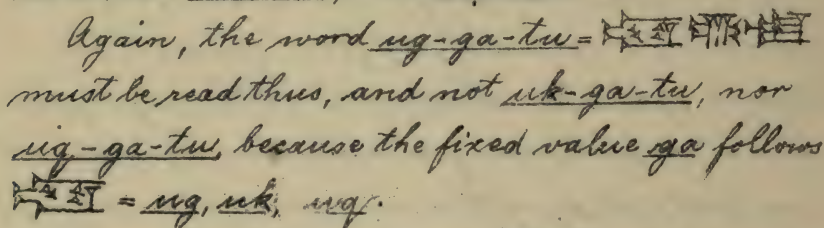 Again, the word ug-ga-tu = 𒊌 𒂵 𒌅
must be read thus, and not uk-ga-tu, nor
uq-ga-tu, because the fixed value ga follows
𒊌 = ug, uk, uq.